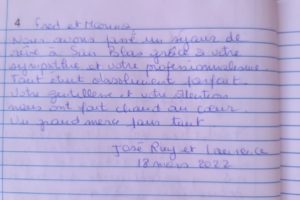 4 Fred et
Nous avons passé un séjour de
rêve à San Blas grâce à votre
sympathie et votre professionnalisme.
Tout était absolument parfait.
Votre gentillesse et votre attention
nous ont fait chaud au cœur.
Un grand merci pour tout
José Ruy et
18 mars 2022